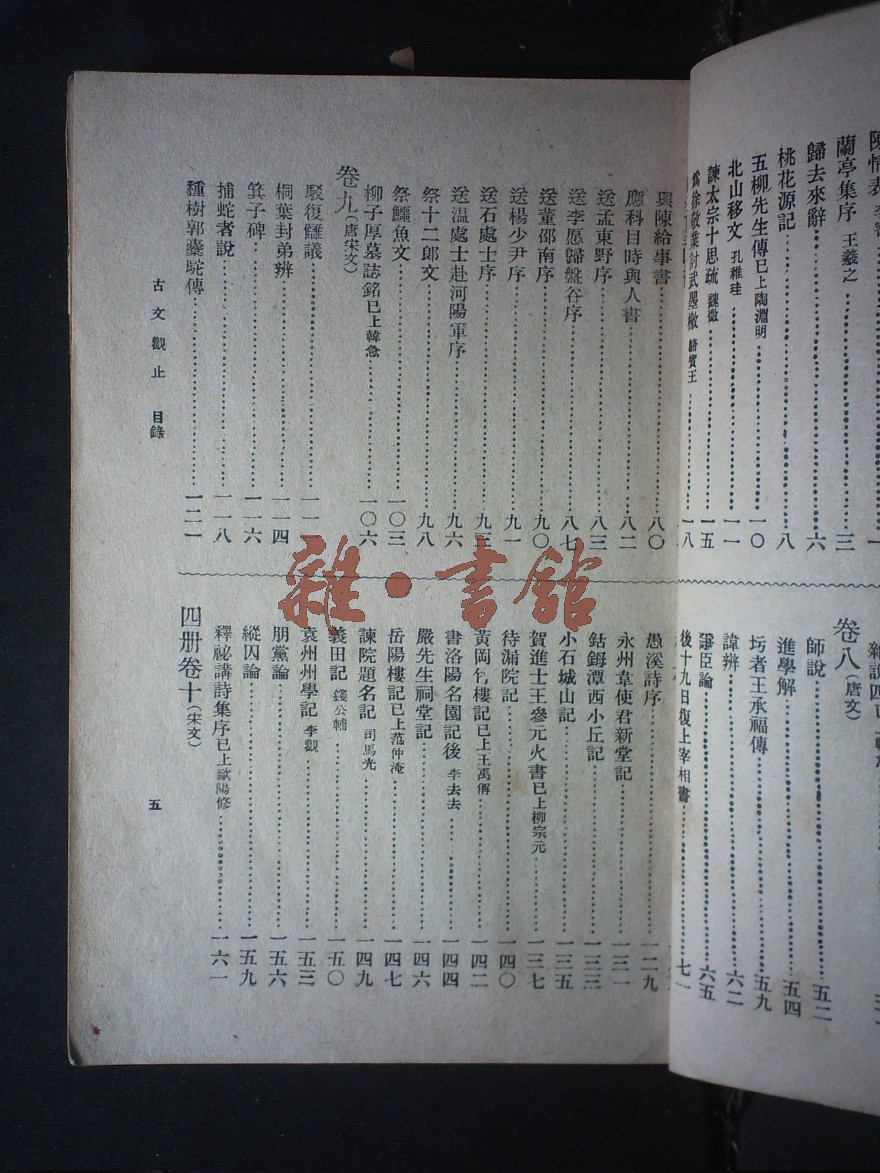 蘭亭集序 王羲之 三
歸去來辭 六
桃花源記 八
五柳先生傳已上陶淵明 一〇
北山移文 孔稚珪 一一
諫太宗十思疏 魏徵 一五
爲徐敬業討武曌檄 駱賓王 一八
卷八(唐文)
師說 五二
進學解 五四
圬者王承福傳 五九
諱辨 六二
諍臣論 六五
後十九日復上宰相書 七一
與陳給事書 八〇
應科目時與人書 八二
送孟東野序 八三
送李愿歸盤谷序 八七
送董邵南序 九〇
送楊少尹序 九一
送石處士序 九三
送溫處士赴河陽軍序 九六
祭十二郎文 九八
祭鱷魚文 一〇三
柳子厚墓誌銘已上韓愈 一〇六
卷九(唐宋文)
駁復讎議 一一
桐葉封弟辨 一一四
箕子碑 一一六
捕蛇者說 一一八
種樹郭橐駝傳 一二一
愚溪詩序 一二九
永州韋使君新堂記 一三一
鈷鉧潭西小丘記 一三三
小石城山記 一三五
賀進士王參元火書已上柳宗元 一三七
待漏院記 一四〇
黃岡竹樓記已上王禹偁 一四二
書洛陽名園記後 李去去 一四四
嚴先生祠堂記 一四六
岳陽樓記已上范仲淹 一四七
諫院題名記 司馬光 一四九
義田記 錢公輔 一五〇
袁州州學記 李覯 一五三
朋黨論 一五六
縱囚論 一五九
釋祕講詩集序已上歐陽修 一六一
四册卷十(宋文)
古文觀止 目錄
五
雜·書館